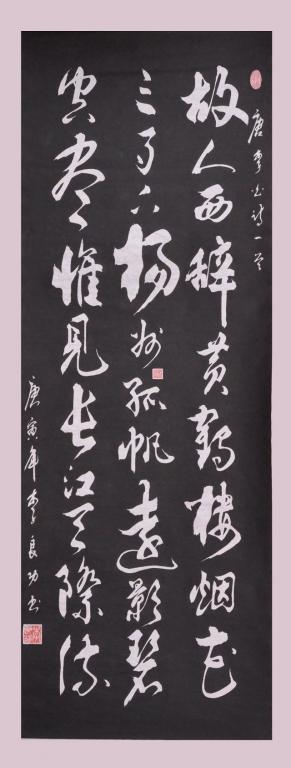 唐李白诗一首
故人西辞黄鹤楼烟花
三月下扬州孤帆远影碧
空尽惟见长江天际流
庚寅年李良功书